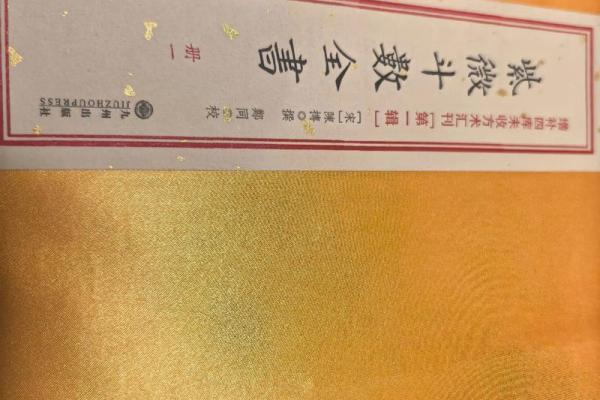 增补四库未收方术汇刊［第一辑］
紫微斗數全書
［宋］陳摶◎撰
鄭同◎校
一册
九州出版社
JIUZHOUPRESS